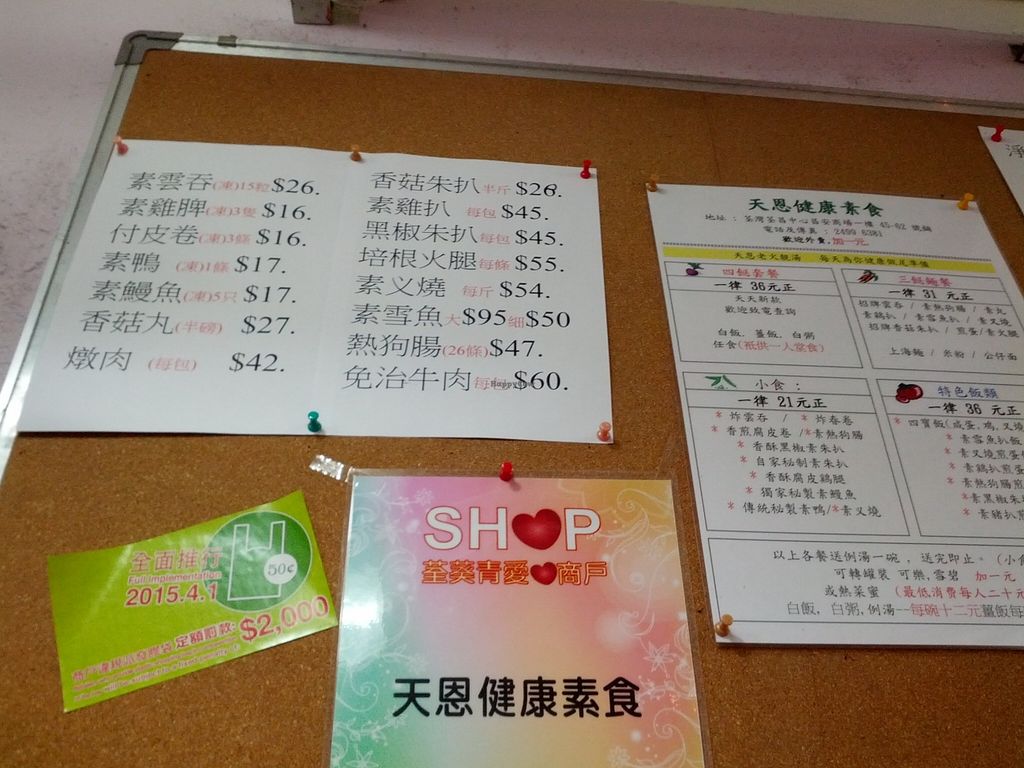 素雲吞(凍)15粒 $26.
素雞脾(凍)3隻 $16.
付皮卷(凍)3條 $16.
素鴨 (凍)1條 $17.
素鰻魚(凍)5只 $17.
香菇丸(半磅) $27.
燉肉 (每包) $42.
香菇朱扒半斤$26.
素雞扒 每包 $45.
黑椒朱扒每包$45.
培根火腿每條$55.
素义燒 每斤 $54.
素雪魚大$95細$50
熱狗腸(26條)$47.
免治牛肉每包$60.
HappyCow
天恩健康素食
地址 : 荃灣荃昌中心昌安商場一樓 45-62 號舖
電話及傳真 : 2499 6381
歡迎外賣,加一元
天恩老火靚湯 每天為你健康做足準備
四餸套餐
一律 36元正
天天新款
歡迎致電查詢
白飯﹑薑飯﹑白粥
任食(祗供一人堂食)
三餸麵餐
一律 31 元正
招牌雲吞 / 素熱狗腸 / 素丸
素鷄扒 / 素雪魚扒 / 素叉燒
招牌香菇朱扒 / 煎蛋/素火腿
上海麵 / 米粉 / 公仔面
小食 :
一律 21元正
* 炸雲吞 / * 炸春卷
* 香煎腐皮卷 /*素熱狗腸
* 香酥黑椒素朱扒
* 自家秘制素朱扒
* 香酥腐皮鷄腿
* 獨家秘製素鰻魚
* 傳統秘製素鴨/*素叉燒
特色飯類
一律 36 元正
* 四寶飯(咸蛋,鷄,叉燒
* 素雪魚扒飯
* 素叉燒煎蛋
* 素鷄扒煎蛋
* 素熱狗腸煎
* 素黑椒朱
* 素豬扒
以上各餐送例湯一碗 , 送完即止。(小食
可轉罐裝 可樂,雪碧 加一元
或熱菜蜜 (最低消費每人二十元
白飯, 白粥,例湯--每碗十二元薑飯每
淨
SHOP
荃葵青愛商戶
天恩健康素食
全面推行
Full Implementation
2015.4.1
50¢
定額罰款:
$2,000